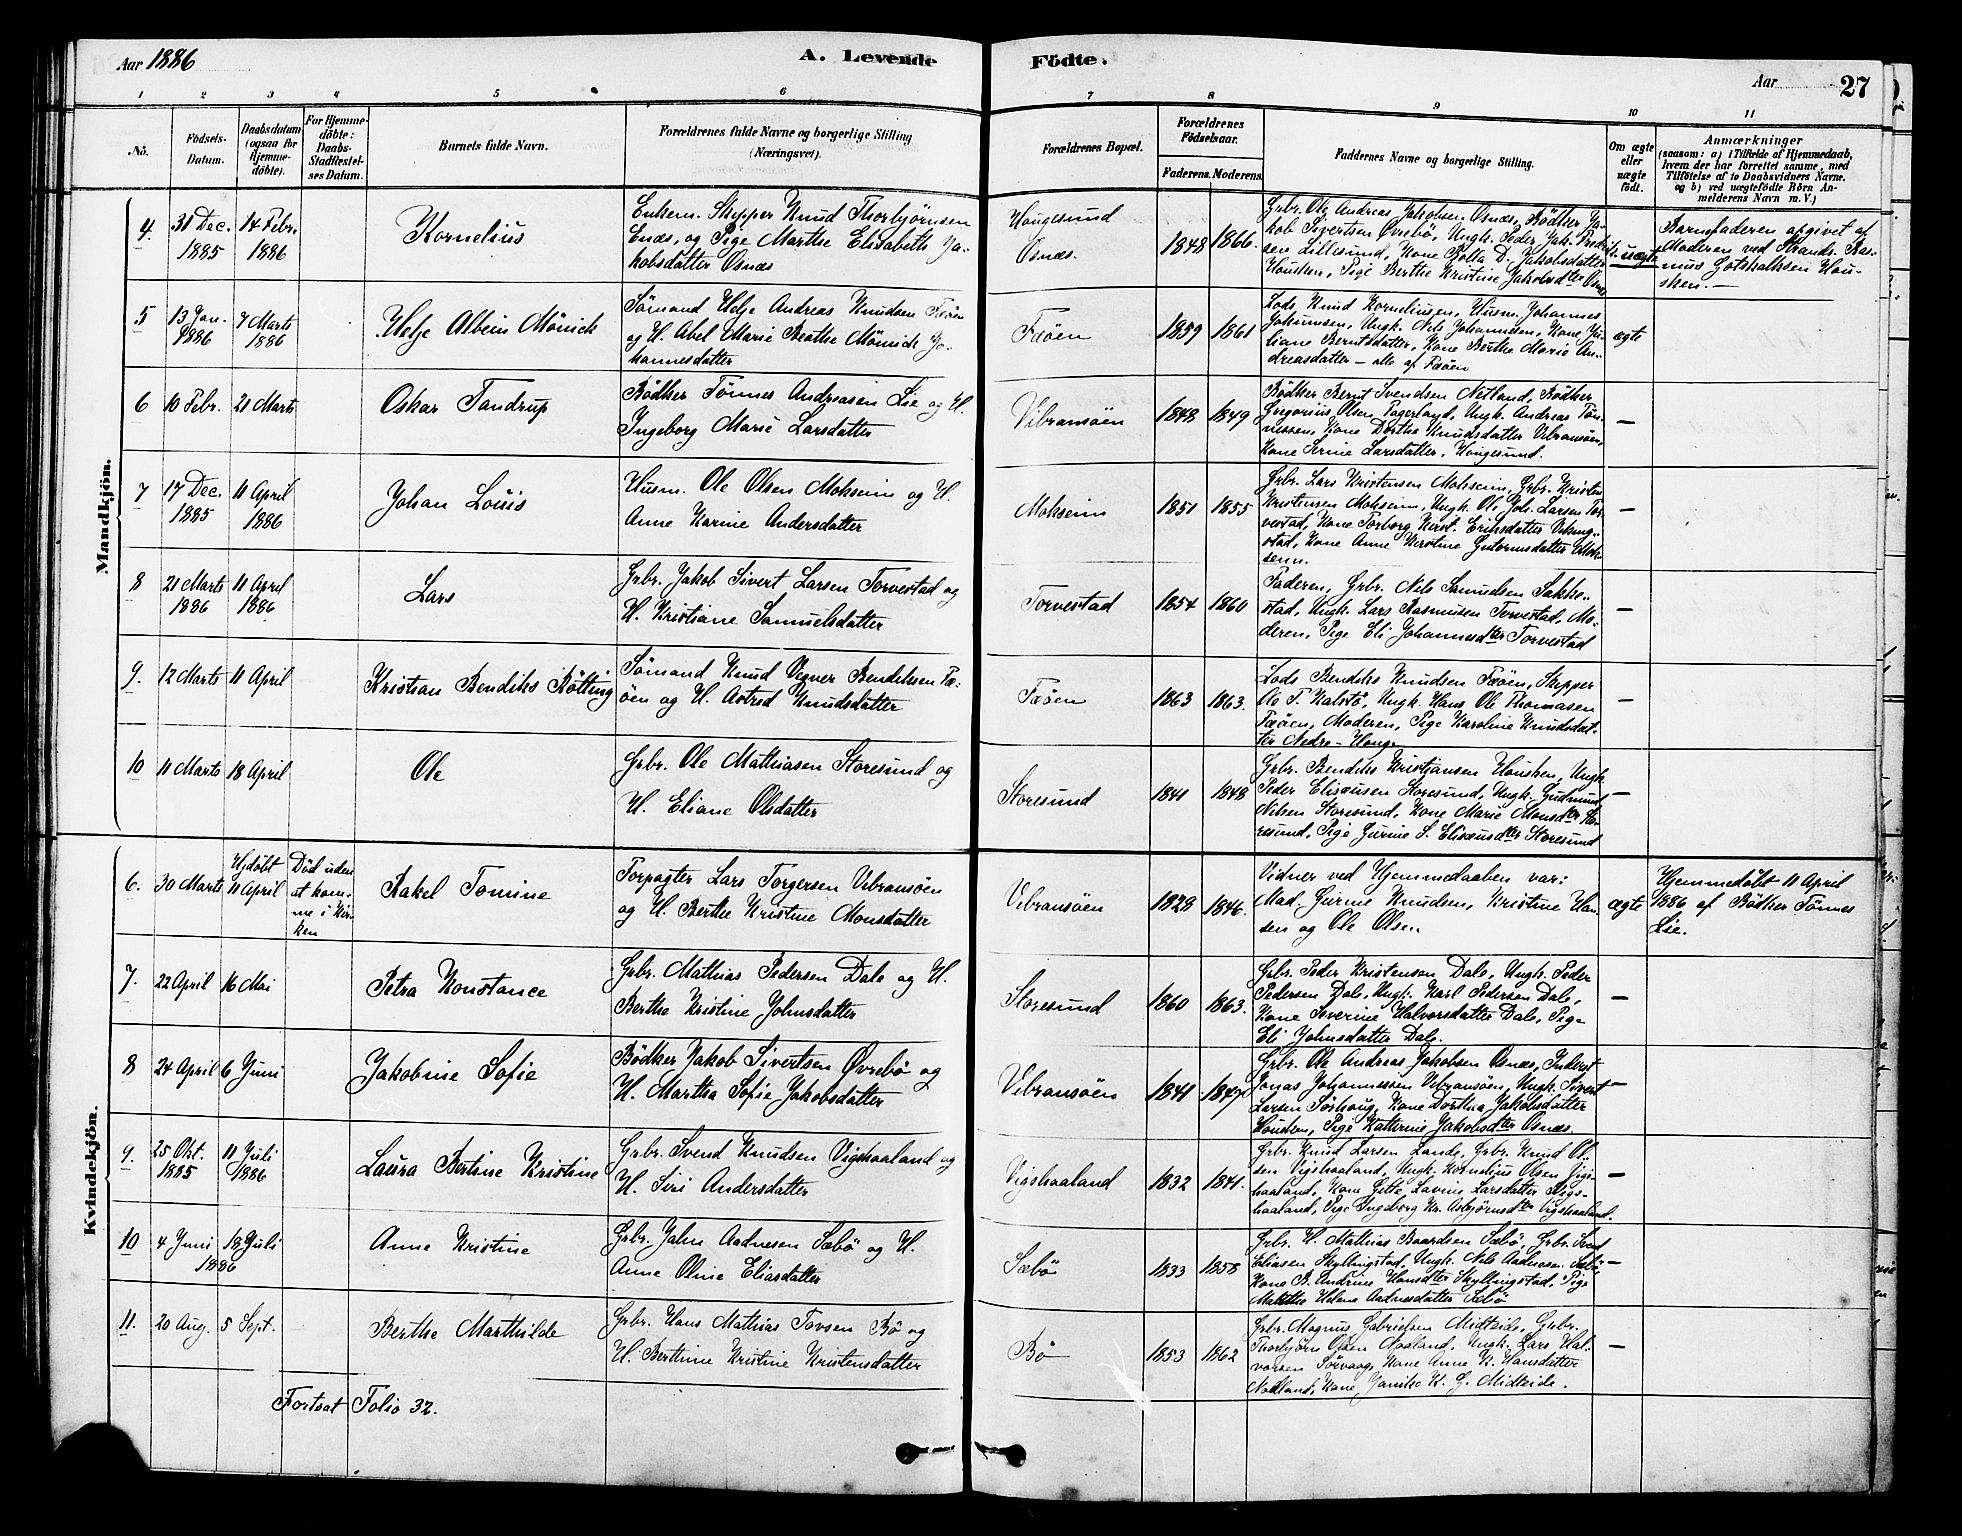 Aar 1886
A. Levende
Födte.
Aar
27
1 2 3 4 5 6 7 8 9 10 11
No.
Födsels-
Datum.
Daabsdatum
(ogsaa for
Hjemme-
döbte).
For Hjemme-
döbte:
Daabs-
Stadfæstel-
ses Datum.
Barnets fulde Navn.
Forældrenes fulde Navne og borgerlige Stilling
(Næringsvei).
Forældrenes Bopæl.
Forældrenes
Födselsaar.
Faderens. Moderens.
Faddernes Navne og borgerlige Stilling.
Om ægte
eller
uægte
födt.
Anmærkninger
(saasom: a) i Tilfælde af Hjemmedaab,
hvem der har forrettet samme, med
Tilföielse af to Daabsvidners Navne.
og b) ved uægtefödte Börn An-
melderens Navn m. V.)
Mandkjön.
4. 31 Dec. 1885
14 Febr. 1886
Kornelius
Enkem. Skipper Knud Thorbjørnsen
Enæs, og Pige Marthe Elisabeth Ja-
kobsdatter Osnæs
Hougesund
Osnæs.
1848 1866.
Grbr. Ole Andreas Jakobsen Osnæs, Bødker Ja-
kob Sivertsen Øvrebø, Ungk. Peder Jak. Fredrik-
sen Lillesund, Kone Bolta D. Jakobsdatter
Housken, Pige Berthe Kristine Jakobsdter Osnæs
uægte
Barnefaderen opgivet af
Moderen ved Strands. Ras-
mus Gotskalksen Hou-
sken.—
5 13 Jan. 1886
7 Marts 1886
Helje Albein Mönich
Sømand Helje Andreas Knudsen Fæøen
og H. Abel Marie Beathe Mönich Jo-
hannesdatter
Fæøen
1859 1861
Lods Knud Korneliusen, Husm. Johannes
Jokumsen, Ungk. Nils Johannesen, Kone Ju-
liane Berntsdatter, Kone Berthe Marie An-
dreasdatter — alle af Fæøen
ægte
6 10 Febr. 21 Marts
Oskar Tandrup
Bødker Tønnes Andreasen Lie og H.
Ingeborg Marie Larsdatter
Vibransøen
1848 1849
Bødker Bernt Svendsen Netland, Bødker
Gregorius Olsen Fagerland, Ungk. Andreas Tøn-
nessen, Kone Dorthe Knudsdatter Vibransøen,
Kone Serine Larsdatter, Hougesund.
—
7 17 Dec. 1885
11 April 1886
Johan Louis
Husm. Ole Olsen Mokseim og H.
Anne Karine Andersdatter
Mokseim
1851 1855
Grbr. Lars Kristensen Mokseim, Grbr. Kristen
Kristensen Mokseim, Ungk. Ole Joh. Larsen Tor-
vestad, Kone Torborg Kirst. Eriksdatter Viking-
stad, Kone Anne Kirstine Gutormsdatter Mok-
seim.
—
8 21 Marts 1886
11 April 1886
Lars
Grbr. Jakob Sivert Larsen Torvestad og
H. Kristiane Samuelsdatter
Torvestad
1854 1860
Faderen, Grbr. Nils Samuelsen Sakke-
stad, Ungk. Lars Rasmusen Torvestad, Mo-
deren, Pige Eli Johannesdter Torvestad
—
9. 12 Marts 11 April
Kristian Bendiks Rötting
Sømand Knud Vigner Bendiksen Fæ-
øen og H. Astrid Knudsdatter
Fæøen
1863 1863.
Lods Bendiks Knudsen Fæøen, Skipper
Ole T. Kalstø, Ungk. Hans Ole Thomasen
Fæøen, Moderen, Pige Karoline Knudsdat-
ter Nedre-Hauge
—
10 11 Marts 18 April
Ole
Grbr. Ole Mathiasen Storesund og
H. Eliane Olsdatter
Storesund
1841 1848
Grbr. Bendiks Kristiansen Housken, Ungk.
Peder Elisæusen Storesund, Ungk. Gudmund
Nilsen Storesund, Kone Marie Monsdter Sto-
resund, Pige Gurine S. Elisæusdter Storesund
—
Kvindekjön.
6. 30 Marts
Hjdøbt
11 April
Død uden
at kom-
me i Kir-
ken
Rakel Tomine
Forpagter Lars Torgersen Vibransøen
og H. Berthe Kristine Monsdatter
Vibransøen
1828 1846.
Vidner ved Hjemmedaaben var:
Mad. Gurine Knudsen, Kristine Han-
sen og Ole Olsen.
ægte
Hjemmedøbt 11 April
1886 af Bødker Tönnes
Lie.
7. 22 April 16 Mai
Petra Konstance
Grbr. Mathias Pedersen Dale og H.
Berthe Kristine Johnsdatter
Storesund
1860 1863.
Grbr. Peder Kristensen Dale, Ungk. Peder
Pedersen Dale, Ungk. Karl Pedersen Dale,
Kone Severine Halvorsdatter Dale, Pige
Eli Johnsdatter Dale.
—
8 24 April 6 Juni
Jakobine Sofie
Bödker Jakob Sivertsen Øvrebø og
H. Martha Sofie Jakobsdatter
Vibransøen
1841 1847
Grbr. Ole Andreas Jakobsen Osnæs, Inderst
Jonas Johannessen Vibransøen, Ungk. Sivert
Larsen Sørhaug, Kone Dorthea Jakobsdatter
Housken, Pige Katherine Jakobsdter Osnæs.
—
9. 25 Okt. 1885
11 Juli 1886
Laura Bertine Kristine
Grbr. Svend Knudsen Vigshaaland og
H. Siri Andersdatter
Vigshaaland
1832 1841.
Grbr. Knud Larsen Lande, Grbr. Knud Ol-
sen Vigshaaland, Ungk. Kornelius Olsen Vigs-
haaland, Kone Gitte Lavine Larsdatter Vigs-
haaland, Pige Ingeborg Kr. Asbjørnsdter Vigshaaland.
—
10 4 Juni 18 Juli
1886
Anne Kristine
Grbr. Jahn Aadnesen Sæbø og H.
Anne Oline Eliasdatter
Sæbø
1833 1858
Grbr. H. Mathias Baardsen Sæbø, Grbr. Svend
Eliasen Skyllingstad, Ungk. Nils Aadnesen Sæbø,
Kone B. Andrine Hansdter Skyllingstad, Pige
Malethe Helene Aadnesdatter Sæbø
—
11. 20 Aug. 5 Sept.
Berthe Marthilde
Grbr. Hans Mathias Tovsen Bø og
H. Berthine Kristine Kristensdatter
Bø
1853 1862
Grbr. Magnus Gabrielsen Midteide, Grbr.
Thorbjørn Olsen Aadland, Ungk. Lars Hal-
vorsen Sørvaag, Kone Anne K. Hansdatter
Nodland, Kone Janike K. G. Midteide.
—
Fortsat Folio 32.